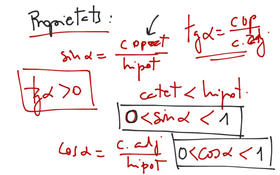 Propietats:
sin α = c. opost / hipot
tg α = c. op / c. adj
tg α > 0
catet < hipot.
0 < sin α < 1
cos α = c. adj / hipot
0 < cos α < 1